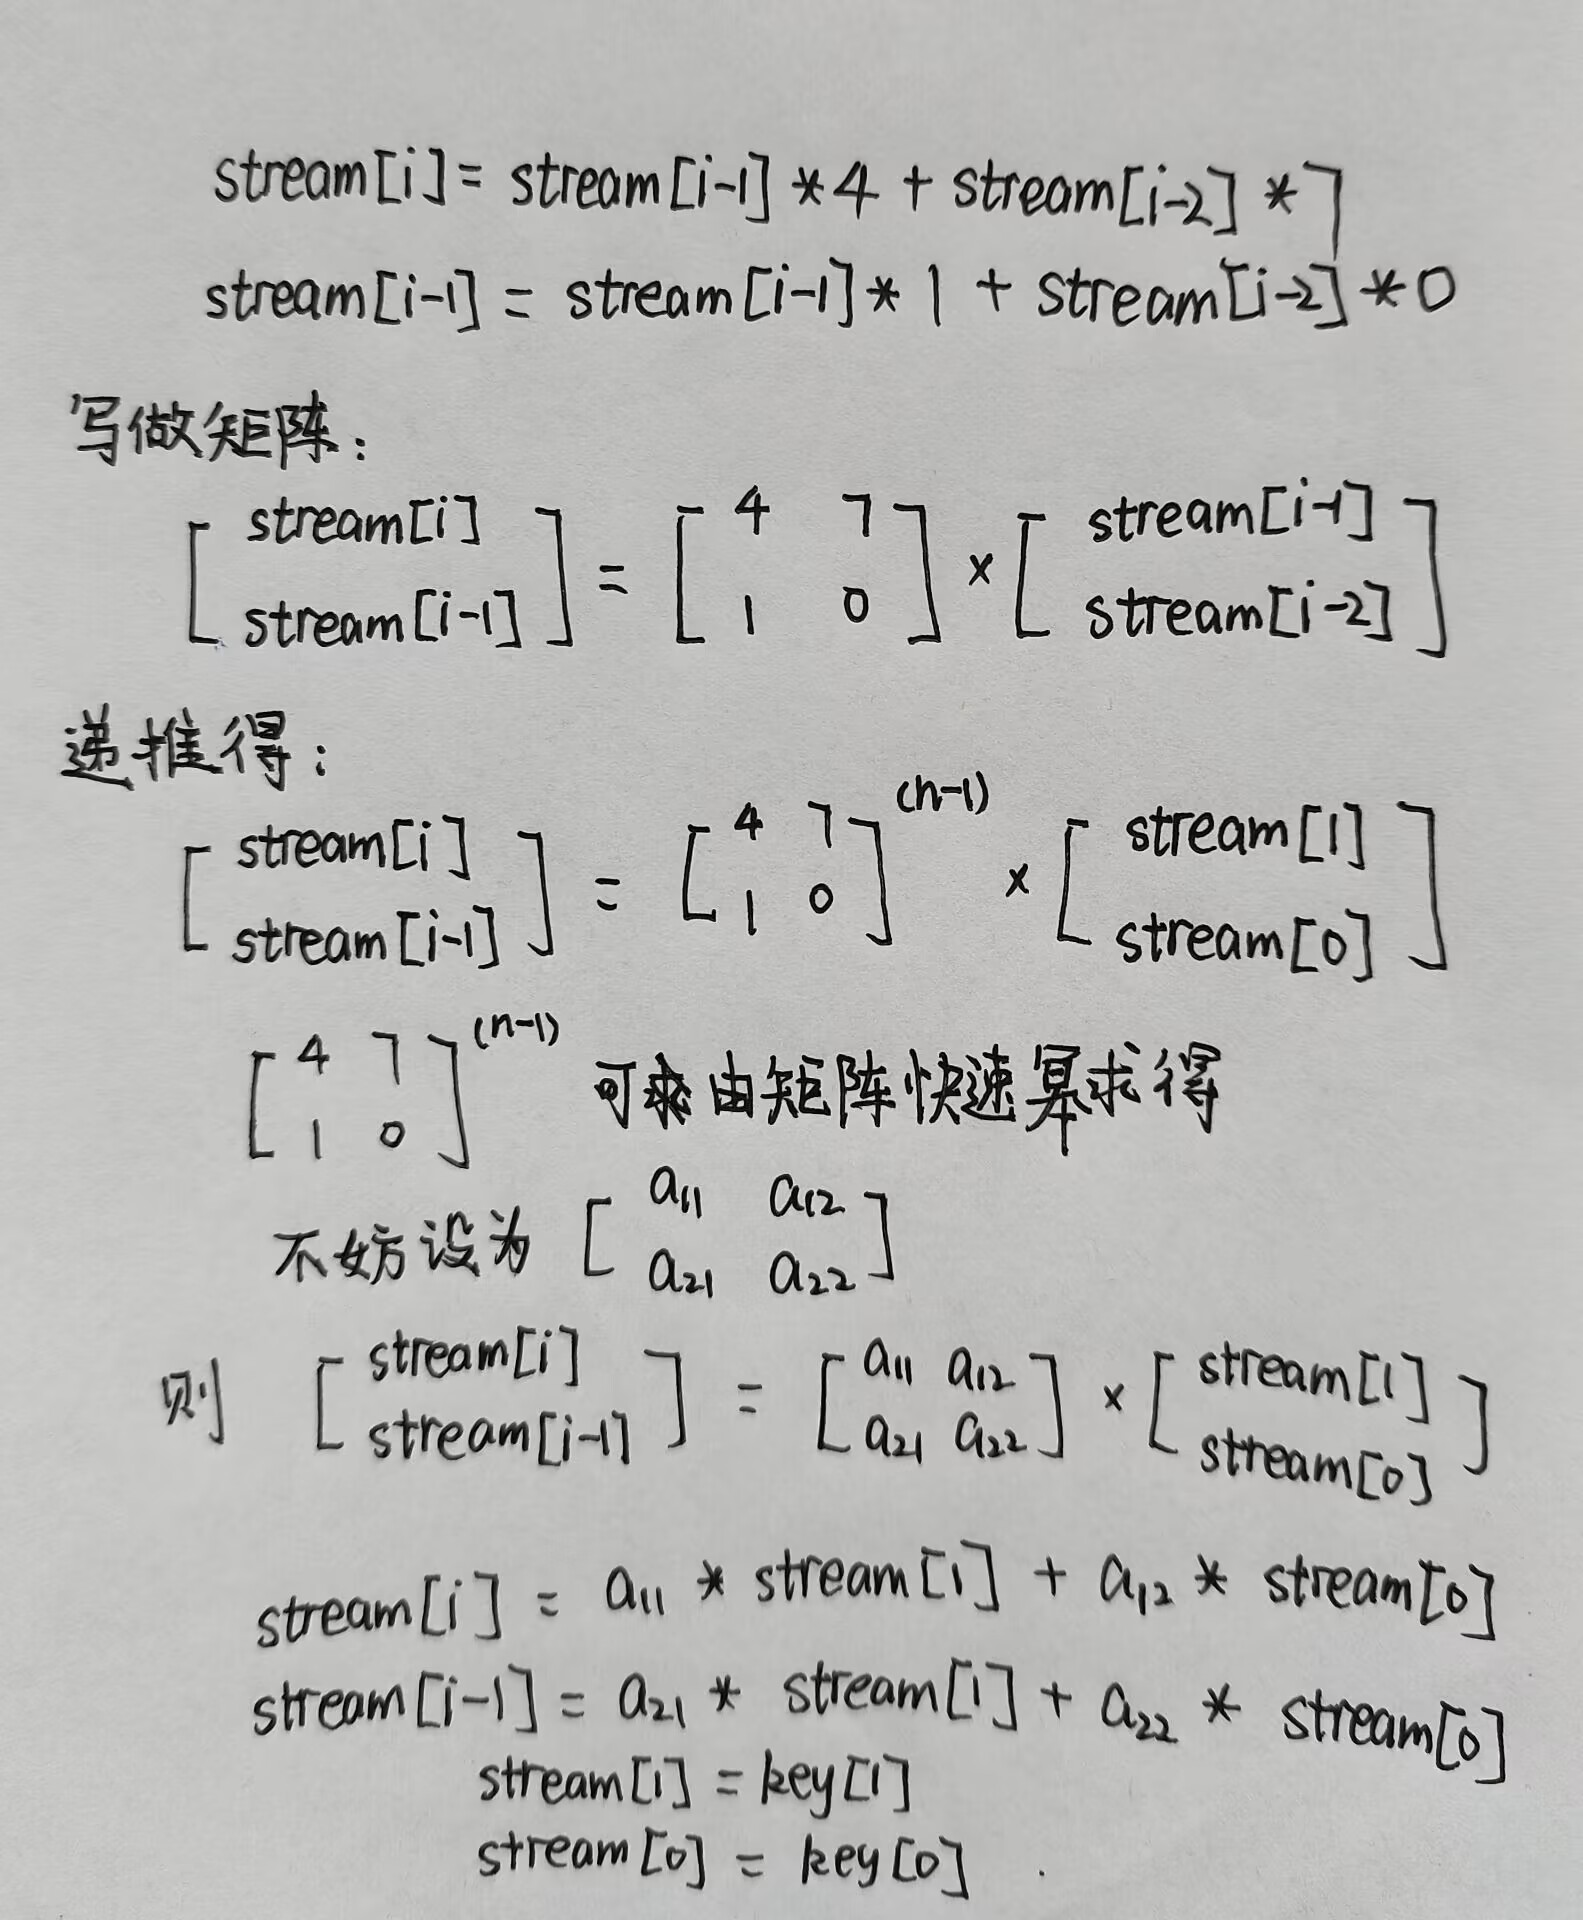 stream[i] = stream[i-1] * 4 + stream[i-2] * 7
stream[i-1] = stream[i-1] * 1 + stream[i-2] * 0
写做矩阵:
[ stream[i] ] = [ 4 7 ] × [ stream[i-1] ]
[ stream[i-1] ] [ 1 0 ] [ stream[i-2] ]
递推得:
[ stream[i] ] = [ 4 7 ] (n-1) × [ stream[1] ]
[ stream[i-1] ] [ 1 0 ] [ stream[0] ]
[ 4 7 ] (n-1) 可由矩阵快速幂求得
[ 1 0 ]
不妨设为 [ a11 a12 ]
[ a21 a22 ]
则 [ stream[i] ] = [ a11 a12 ] × [ stream[1] ]
[ stream[i-1] ] [ a21 a22 ] [ stream[0] ]
stream[i] = a11 * stream[1] + a12 * stream[0]
stream[i-1] = a21 * stream[1] + a22 * stream[0]
stream[1] = key[1]
stream[0] = key[0] .